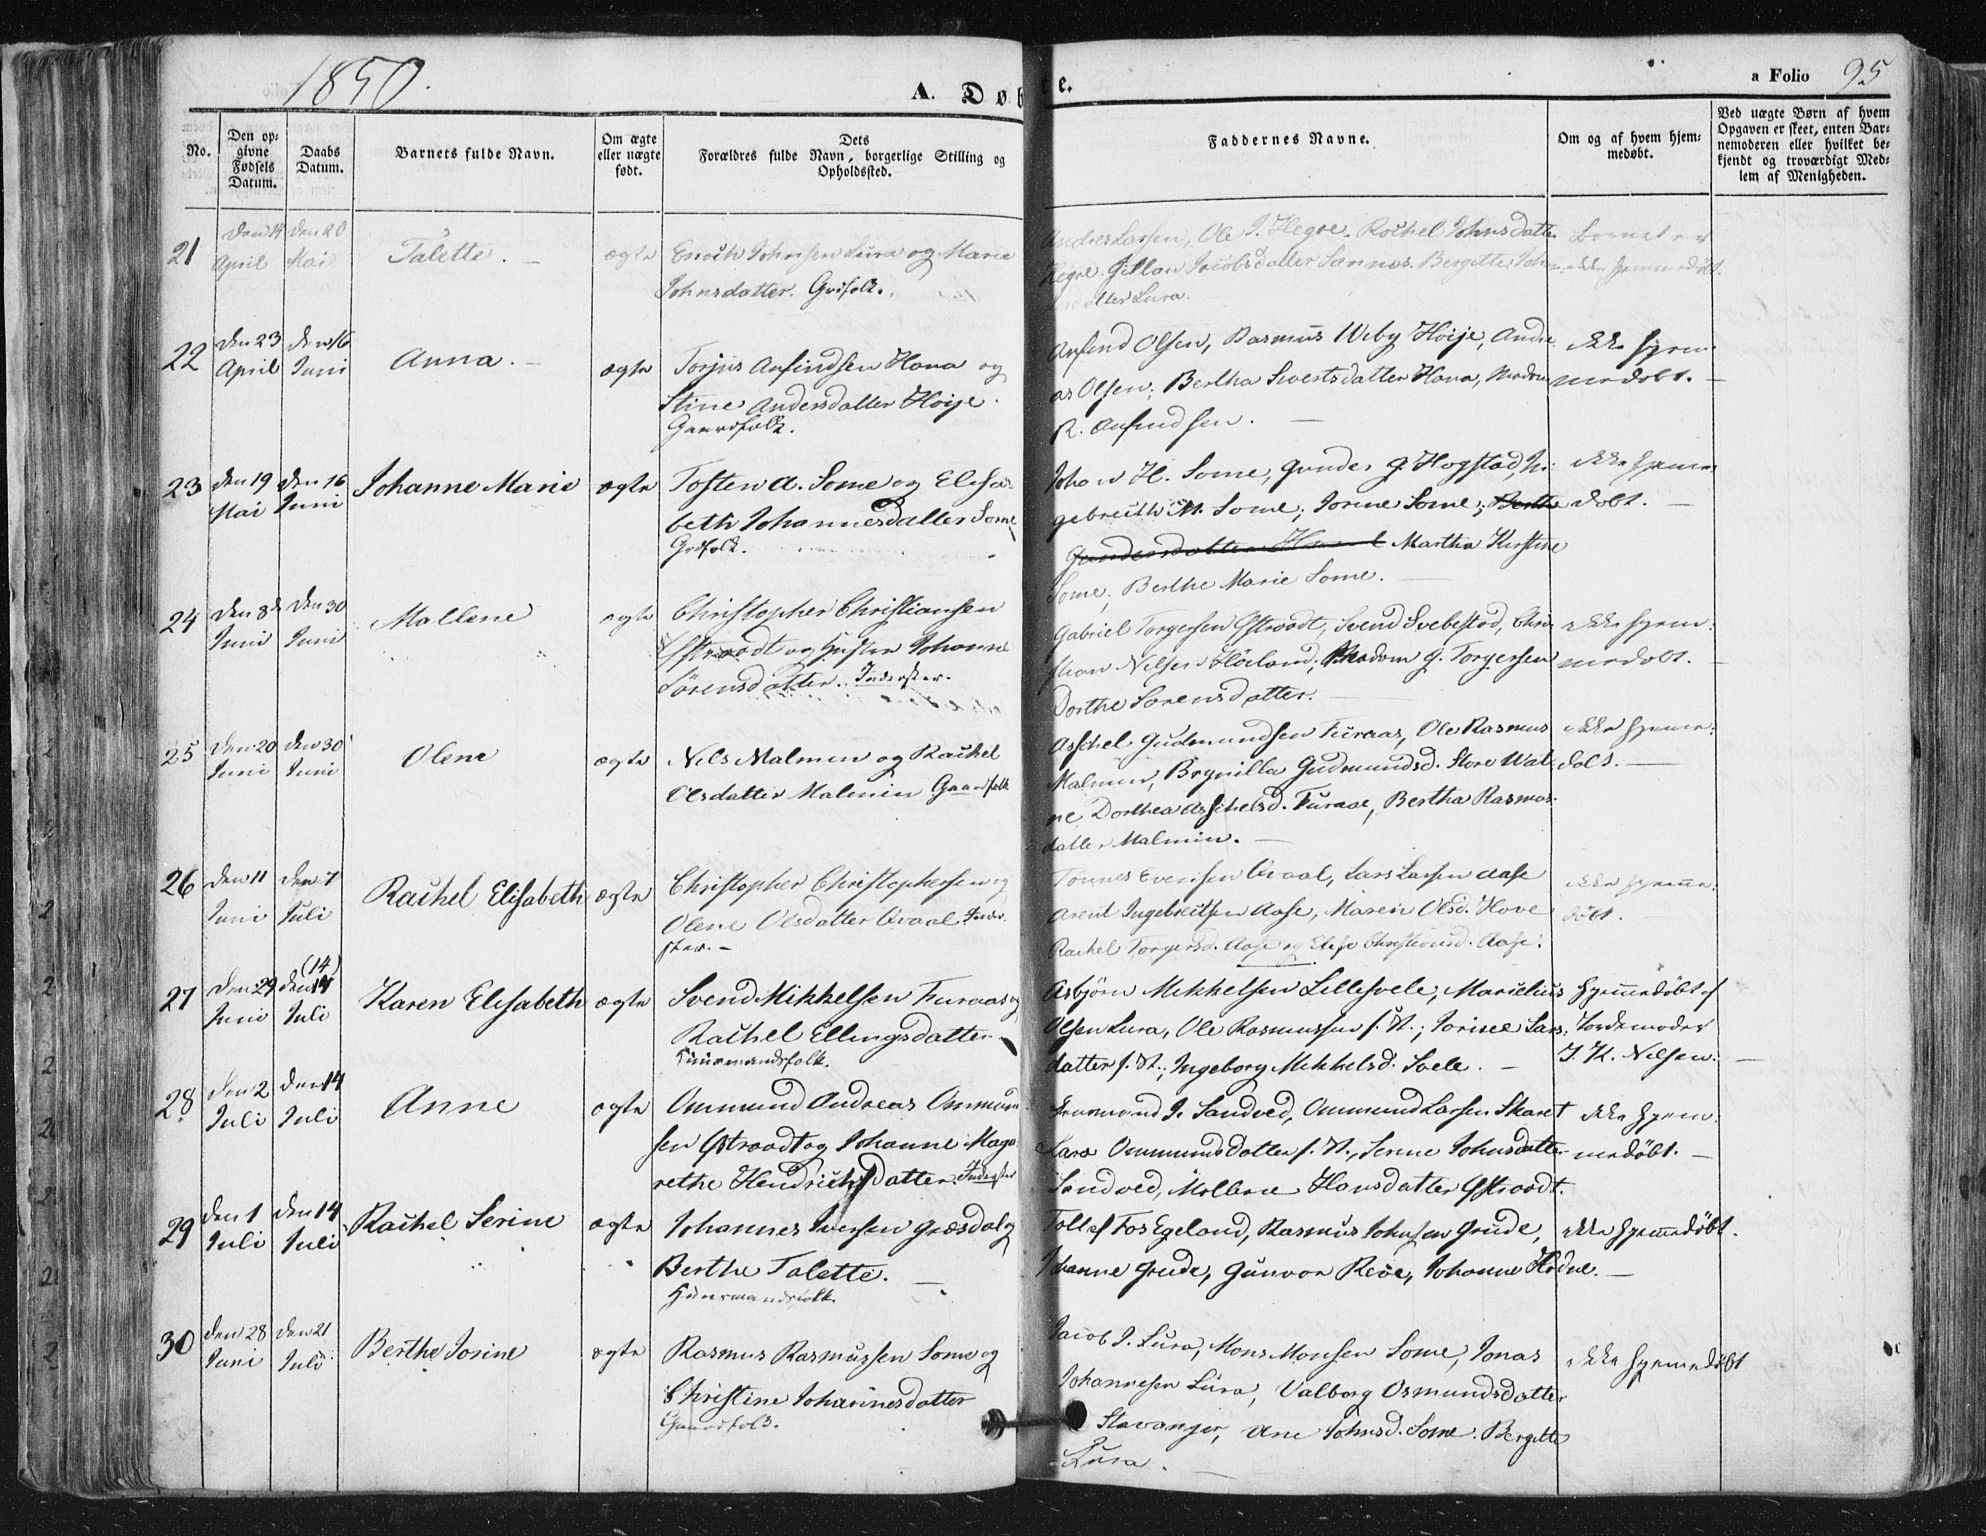 1850.
A. Døb
e.
a Folio 95
No.
Den op-
givne
Fødsels
Datum.
Daabs
Datum.
Barnets fulde Navn.
Om ægte
eller uægte
født.
Dets
Forældres fulde Navn, borgerlige Stilling og
Opholdssted.
Faddernes Navne.
Om og af hvem hjem-
medøbt.
Ved uægte Børn af hvem
Opgaven er skeet, enten Bar-
nemoderen eller hvilket be-
kjendt og troværdigt Med-
lem af Menigheden.
21
Den 14
April
Den 20
Mai
Talette. –
ægte
Enoch Johnsen Lura og Marie
Johnsdatter. Grdfolk.
Andres Larsen, Ole J. Hegre. Rachel Johnsdatter
Hegre. Jacobsdatter Sannes. Bergitte John
datter Lura.
Barnet er
ikke hjemmedöbt.
22
Den 23
April
Den 16
Juni
Anna. –
ægte
Torjus Anfindsen Hana og
Stine Andersdatter Höije.
Gaardfolk.
Anfind Olsen, Rasmus Weby Höije, Andre
as Olsen, Bertha Sivertsdatter Hana, Madam
R. Anfindsen. –
ikke hjem
medöbt. –
23
Den 19
Mai
Den 16
Juni
Johanne Marie
ægte
Tosten A. Some og Elisa-
beth Johannesdatter Some
Grdfolk.
Johan H. Some, Gunder G. Hogstad, In-
gebreith M. Some, Jorine Some, Berthe
Gundersdatter Martha Kirstine
Some, Berthe Marie Some. –
ikke hjemme
döbt. –
24
Den 8de
Juni
Den 30
Juni
Mallene
ægte
Christopher Christiansen
Østraadt og Hustru Johanne
Sörensdatter. Inderster.
Gabriel Torgersen Østraadt, Svend Svebestad, Chri-
stian Nilsen Höiland, Madam G. Torgersen
Dorthe Sorensdatter. –
ikke hjem:
medöbt. –
25
Den 20
Juni
Den 30
Juni
Olene
ægte
Nils Malmin og Rachel
Olsdatter Malmin Gaardfolk
Asschel Gudmundsen Furaas, Ole Rasmus
Malmin, Brynilla Gudmundsd. Store Wat-
ne, Dorthea Asschelsd. Furaae, Bertha Rasmus-
datter Malmin. –
ikke hjemme:
döbt. –
26
Den 11
Juni
Den 7
Juli
Rachel Elisabeth
ægte
Christopher Christophersen og
Olene Olsdatter Qvaal Inder-
ster. –
Tönnes Evensen Qvaal, Lars Larsen Aase
Arent Ingebreitsen Aase, Maren Olsd. Hove
Rachel Torgersd. Aase og Elise Christiansd. Aase.
ikke hjemme:
döbt.
27
Den 29
Juni
(14)
Den 14
Juli
Karen Elisabeth
ægte
Svend Mikkelsen Furaas og
Rachel Ellingsdatter.
Huusmandsfolk.
Asbjörn Mikkelsen Lillesvele, Marselius
Olsen Lura, Ole Rasmussen s. St.; Jorine Lars-
datter s. St.; Ingeborg Mikkelsd. Svele. –
hjemmedöbt af
Jordemoder
J. K. Nilsen. –
28
Den 2
Juli
Den 14
Juli
Anne
ægte
Ommund Andreas Ommund
sen Østraadt og Johanne Maga
rethe Hendrichsdatter Inderster
J. Sandved, Ommund Larsen Skaret
Lara Ommundsdatter s. St., Serine Johnsdatter
Sandved, Mallene Hansdatter Østraadt.
ikke hjem:
medöbt. –
29
Den 1
Juli
Den 14
Juli
Rachel Serine
ægte
Johannes Iversen Græsdal og
Berthe Talette. –
Huusmandsfolk.
Tollef Fos Egeland, Rasmus Johnsen Grude,
Johanne Grude, Gunvor Reve, Johanne Hodne. –
ikke hjemmedöbt.
30
Den 28
Juni
Den 21
Juli
Berthe Jorine
ægte
Rasmus Rasmussen Some og
Christine Johannesdatter
Gaardfolk.
Jacob J. Lura, Mons Monsen Some, Jonas
Johannesen Lura, Valborg Osmundsdatter
Stavanger, Ane Johnsd. Some. Bergitte
Lura. –
ikke hjemmedöbt